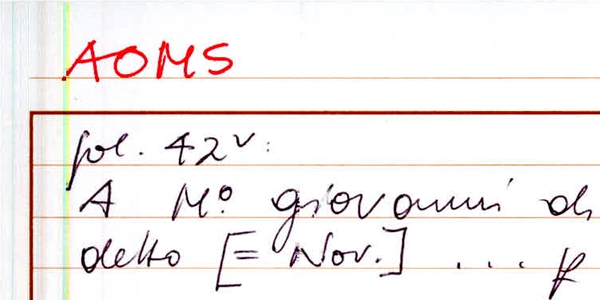 AOMS
fol. 42v:
A Mo. giovanni di
detto [= Nov.] ... p